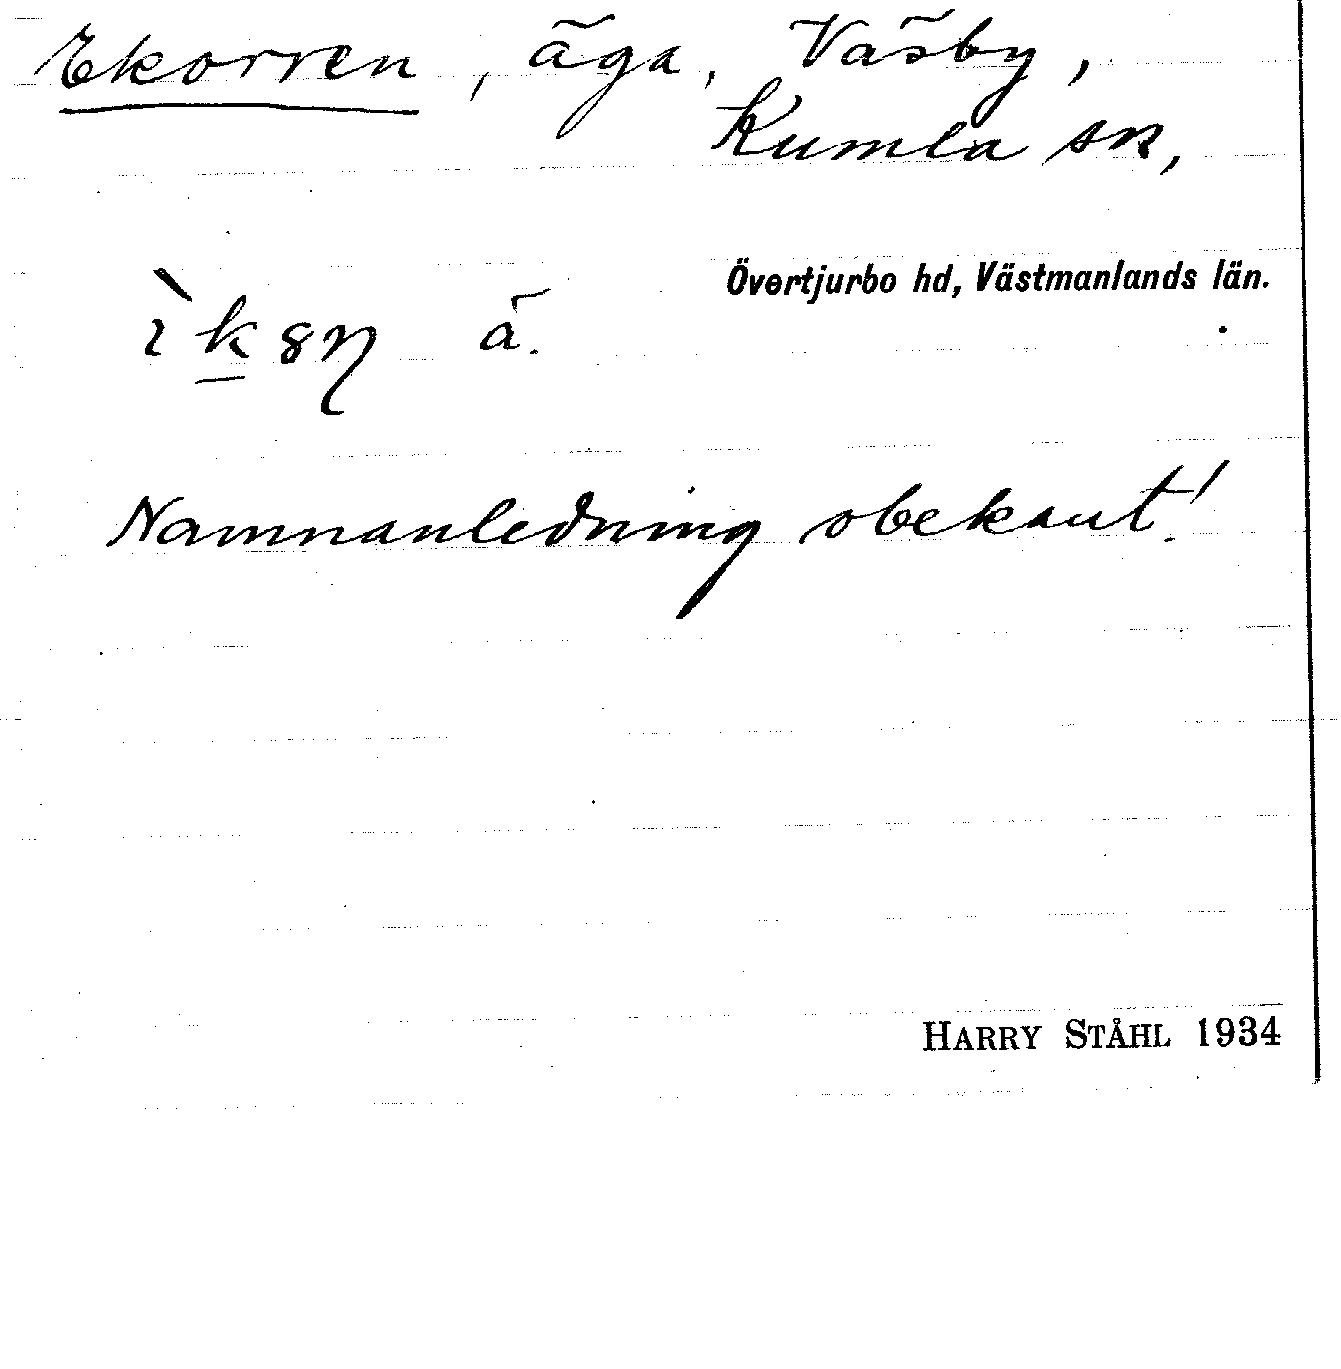 Ekorren, äga, Väsby,
Kumla sn,
Övertjurbo hd, Västmanlands län.
ä.
Namnanledning obekant!
HARRY STÅHL 1934